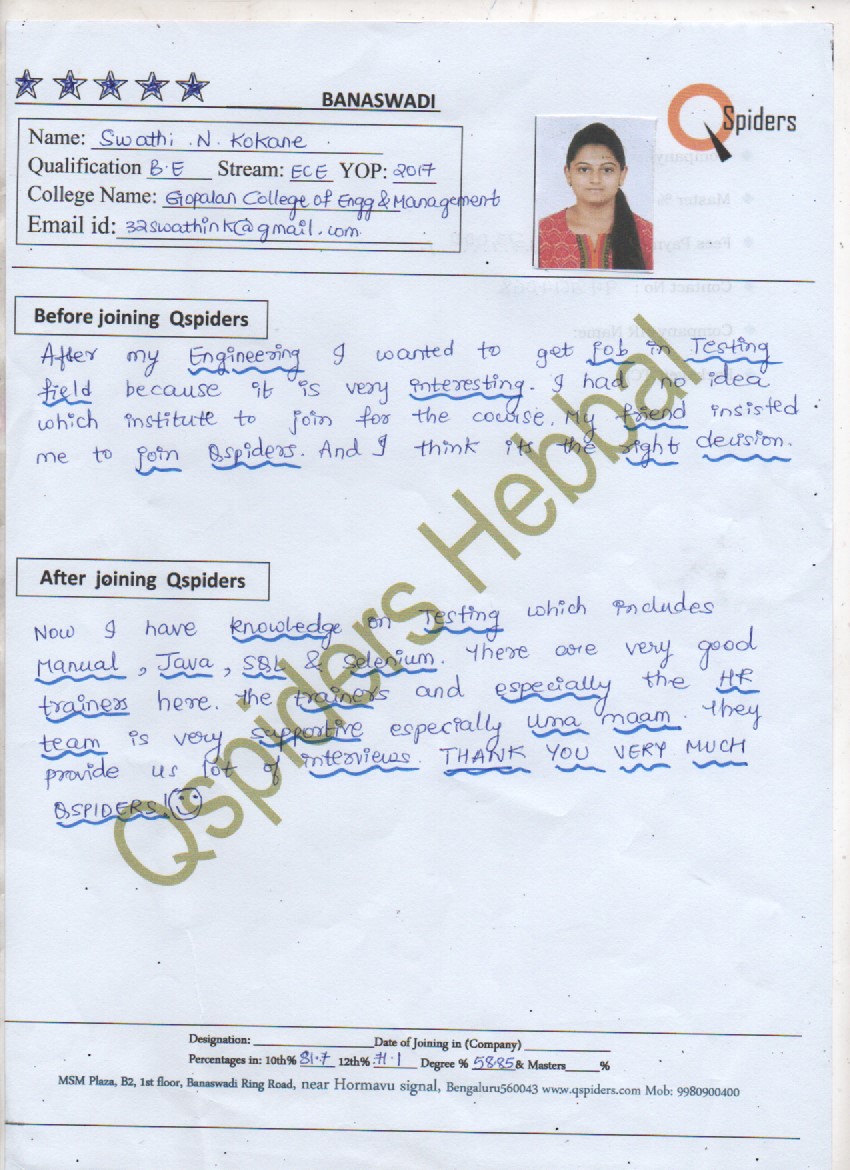 BANASWADI
QSpiders
Name: Swathi .N. Kokane
Qualification B.E Stream: ECE YOP: 2017
College Name: Gopalan College of Engg & Management
Email id: 32swathink@gmail.com
Before joining Qspiders
After my Engineering I wanted to get job in Testing
field because it is very interesting. I had no idea
which institute to join for the course. My friend insisted
me to join Qspiders. And I think its the right decision.
After joining Qspiders
Now I have knowledge on Testing which includes
Manual, Java, SQL & Selenium. There are very good
trainers here. The trainers and especially the HR
team is very supportive especially Uma maam. They
provide us lot of interviews. THANK YOU VERY MUCH
QSPIDERS!
Qspiders Hebbal
Designation: Date of Joining in (Company)
Percentages in: 10th% 81.7 12th% 71.1 Degree % 58.85 & Masters %
MSM Plaza, B2, 1st floor, Banaswadi Ring Road, near Hormavu signal, Bengaluru560043 www.qspiders.com Mob: 9980900400